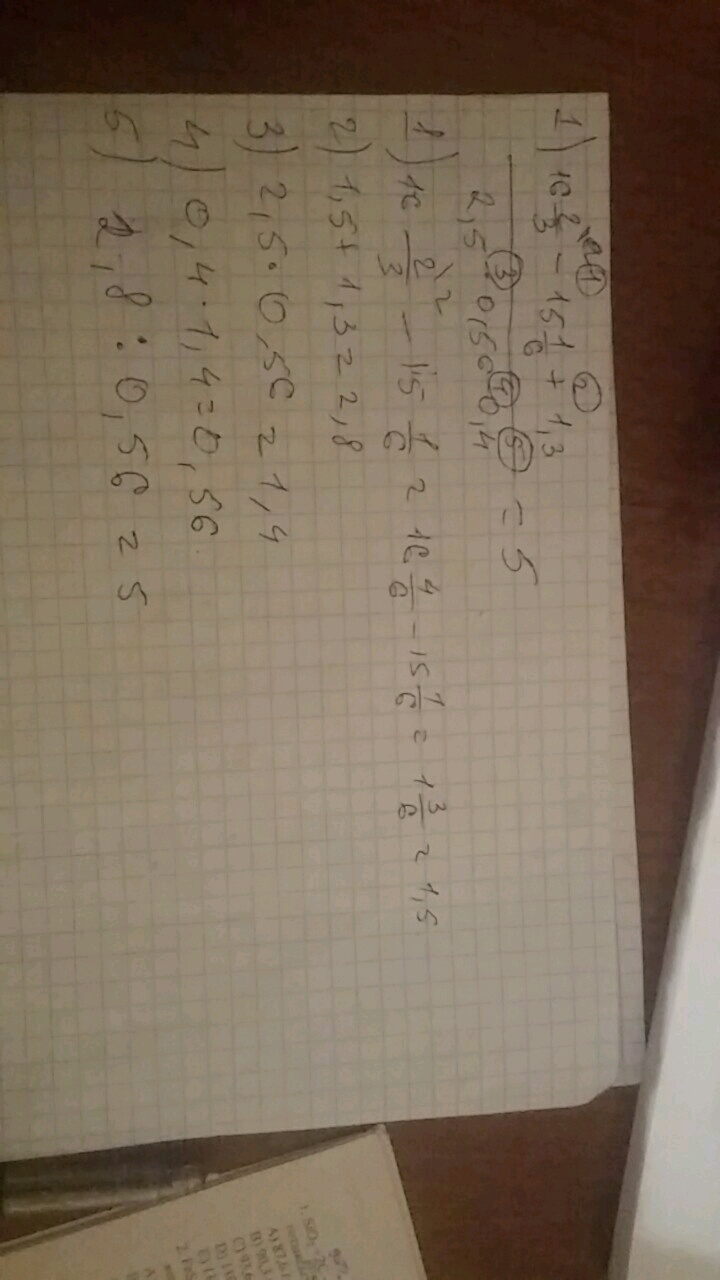 1) 16 2/3 - 15 1/6 + 1,3
2,5 · 0,56 · 0,4 = 5
1) 16 2/3 \2 - 15 1/6 = 16 4/6 - 15 1/6 = 1 3/6 = 1,5
2) 1,5 + 1,3 = 2,8
3) 2,5 · 0,56 = 1,4
4) 0,4 · 1,4 = 0,56
5) 2,8 : 0,56 = 5